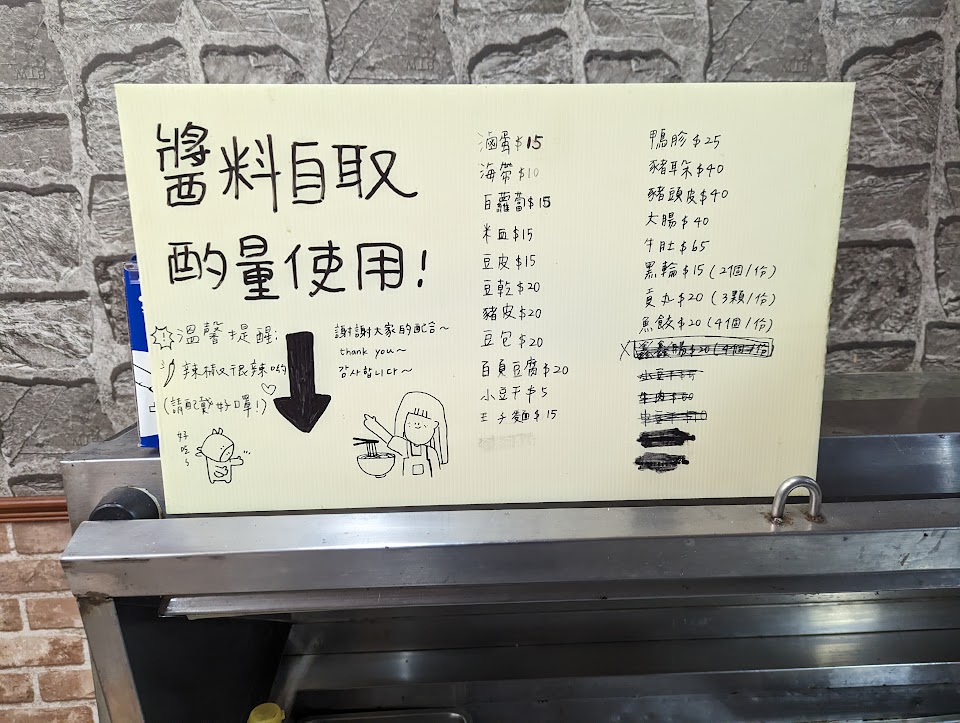 醬料自取
酌量使用!
溫馨提醒:
辣椒又很辣喲
(請配戴好口罩!)
好吃~
謝謝大家的配合~
thank you~
감사합니다~
滷蛋$15
海帶$10
白蘿蔔$15
米血$15
豆皮$15
豆乾$20
豬皮$20
豆包$20
百頁豆腐$20
小豆干$5
王子麵$15
鴨胗$25
豬耳朵$40
豬頭皮$40
大腸$40
牛肚$65
黑輪$15(2個/份)
貢丸$20(3顆/份)
魚餃$20(4個/份)
X 鑫鑫腸$20(4個/份)